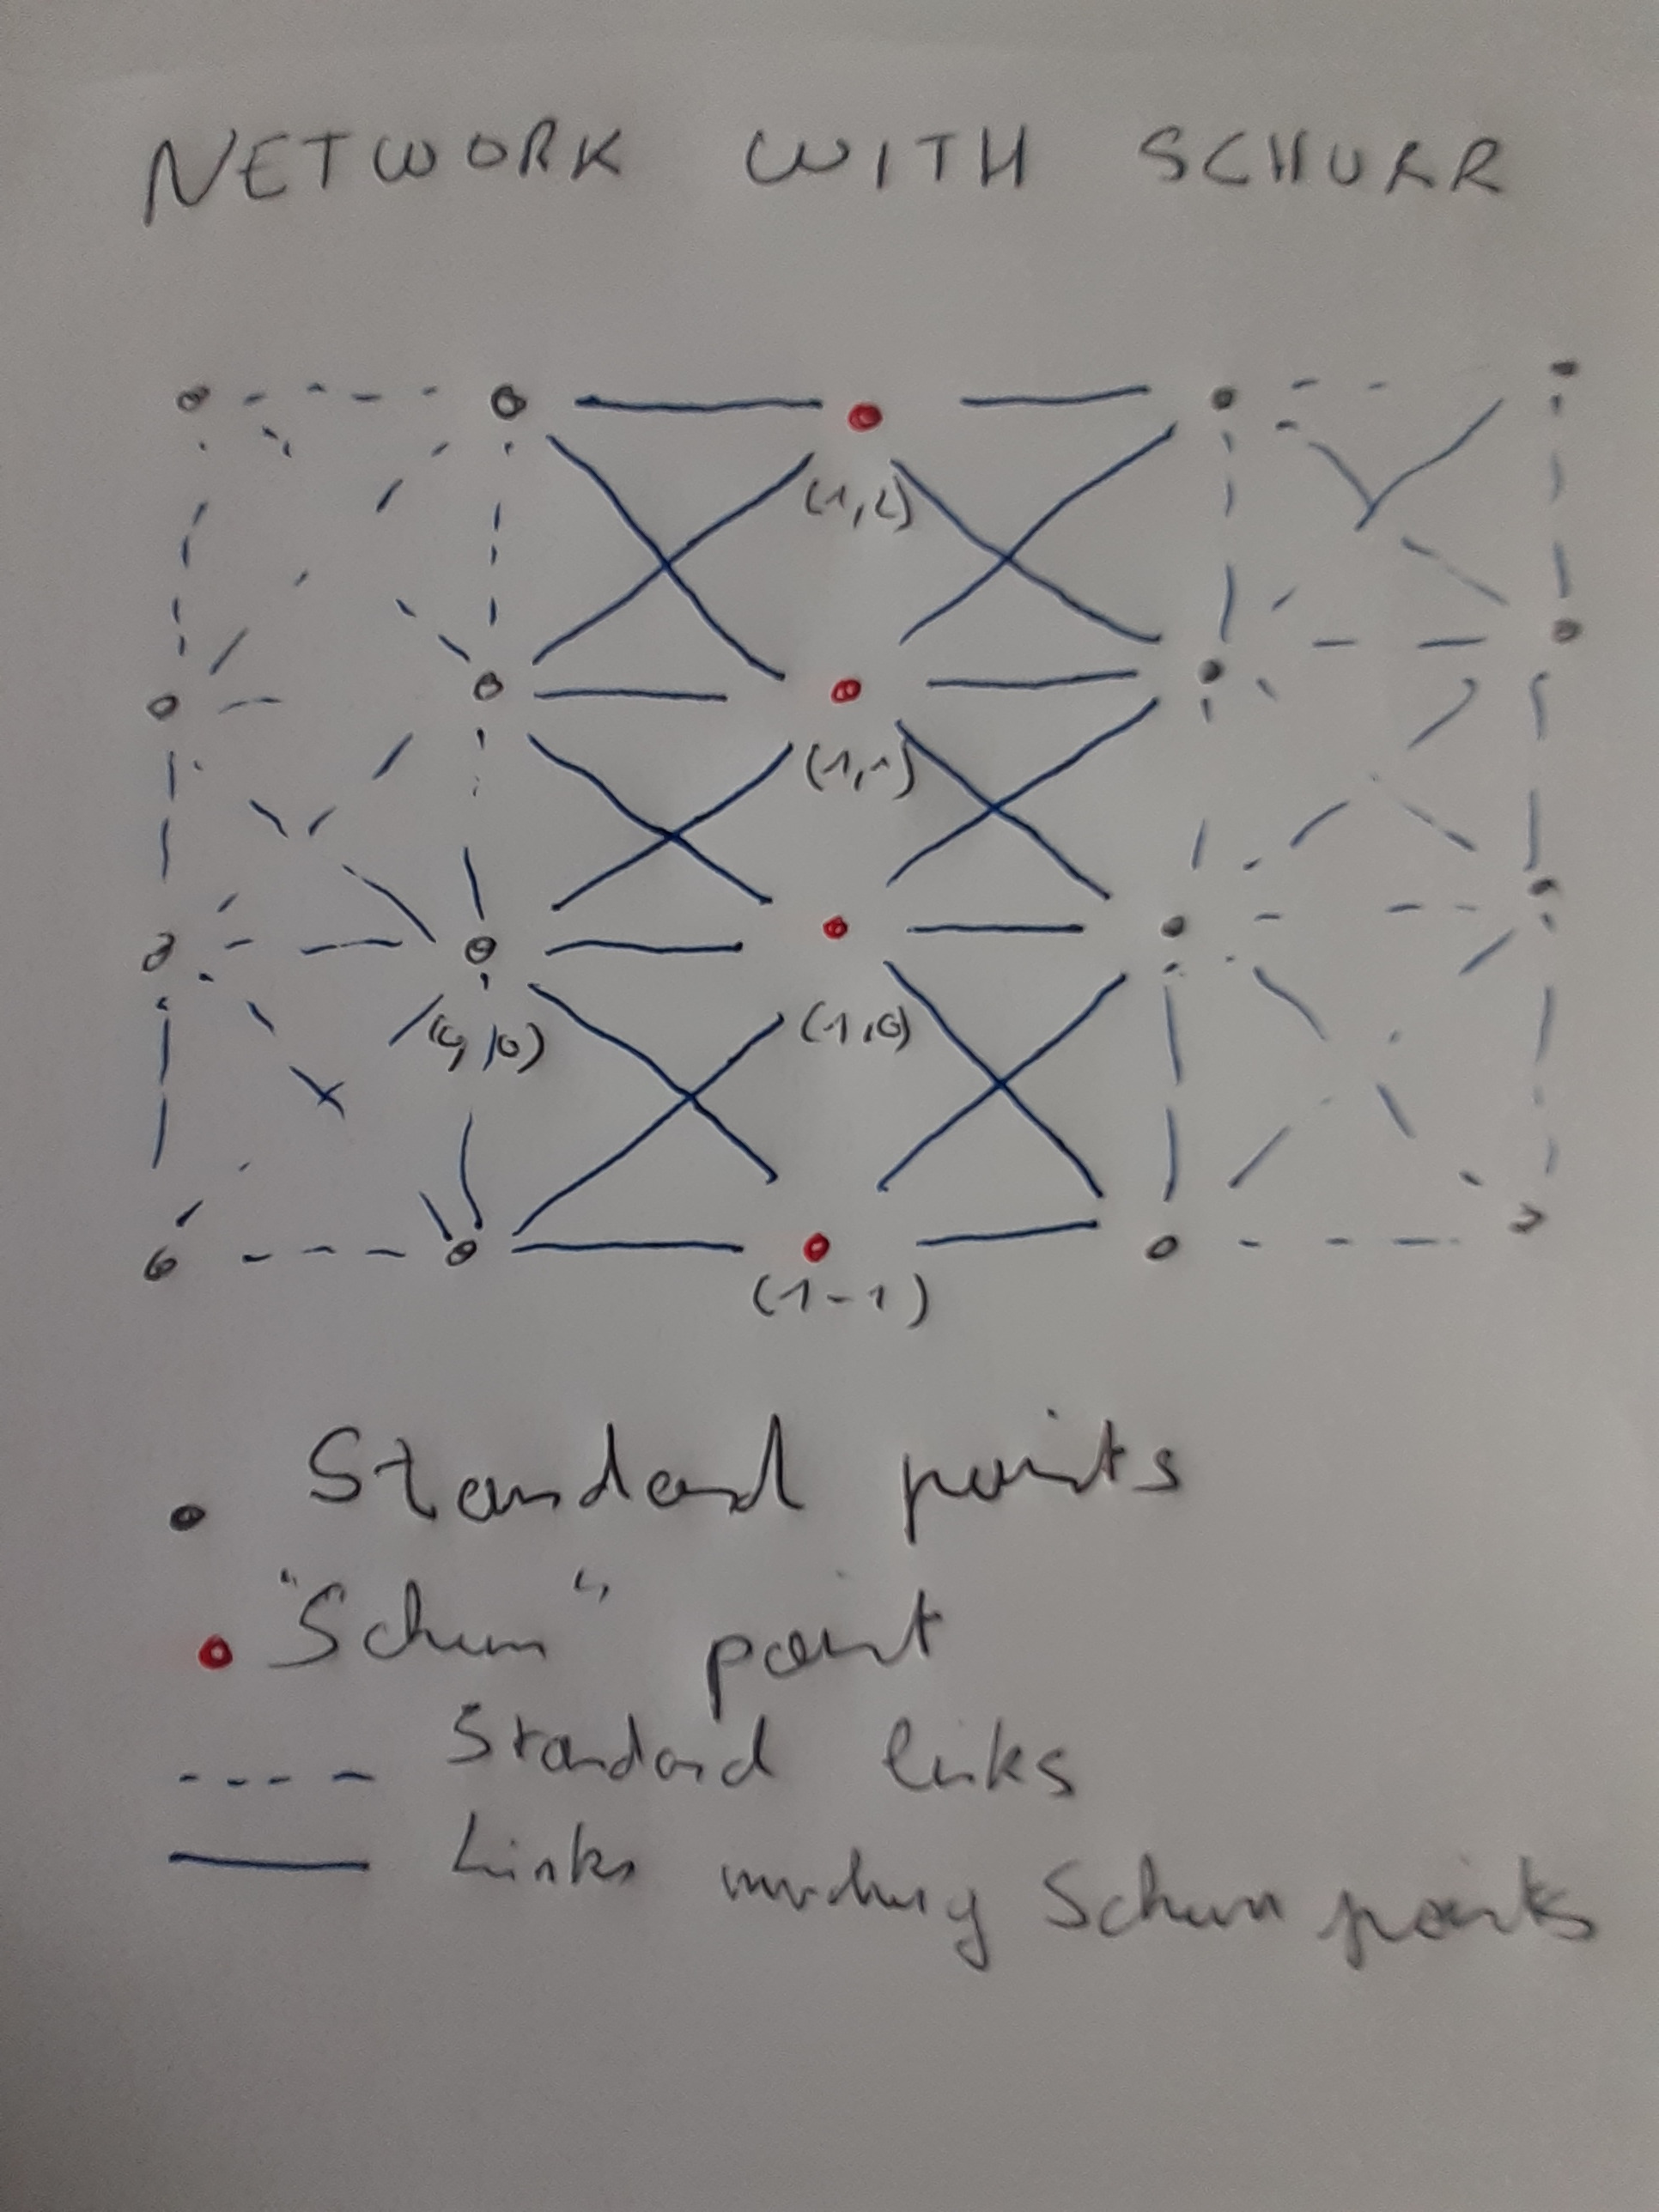 NETWORK WITH SCHURR
(1,2)
(1,1)
(0,0) (1,0)
(1-1)
Standard points
"Schurr" point
Standard links
Links involving Schurr points